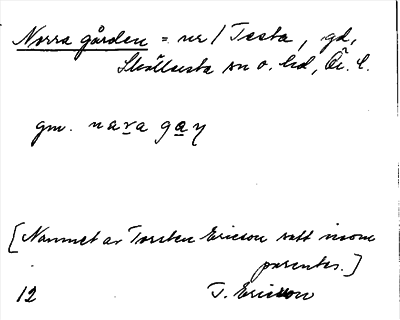 Norra gården = nr 1 Testa, gd,
Skällsesta sn o. hd, Ög. l.
gm. nara gay
[Namnet av Torsten Ericson satt inom
parentes.]
12 T. Ericsson